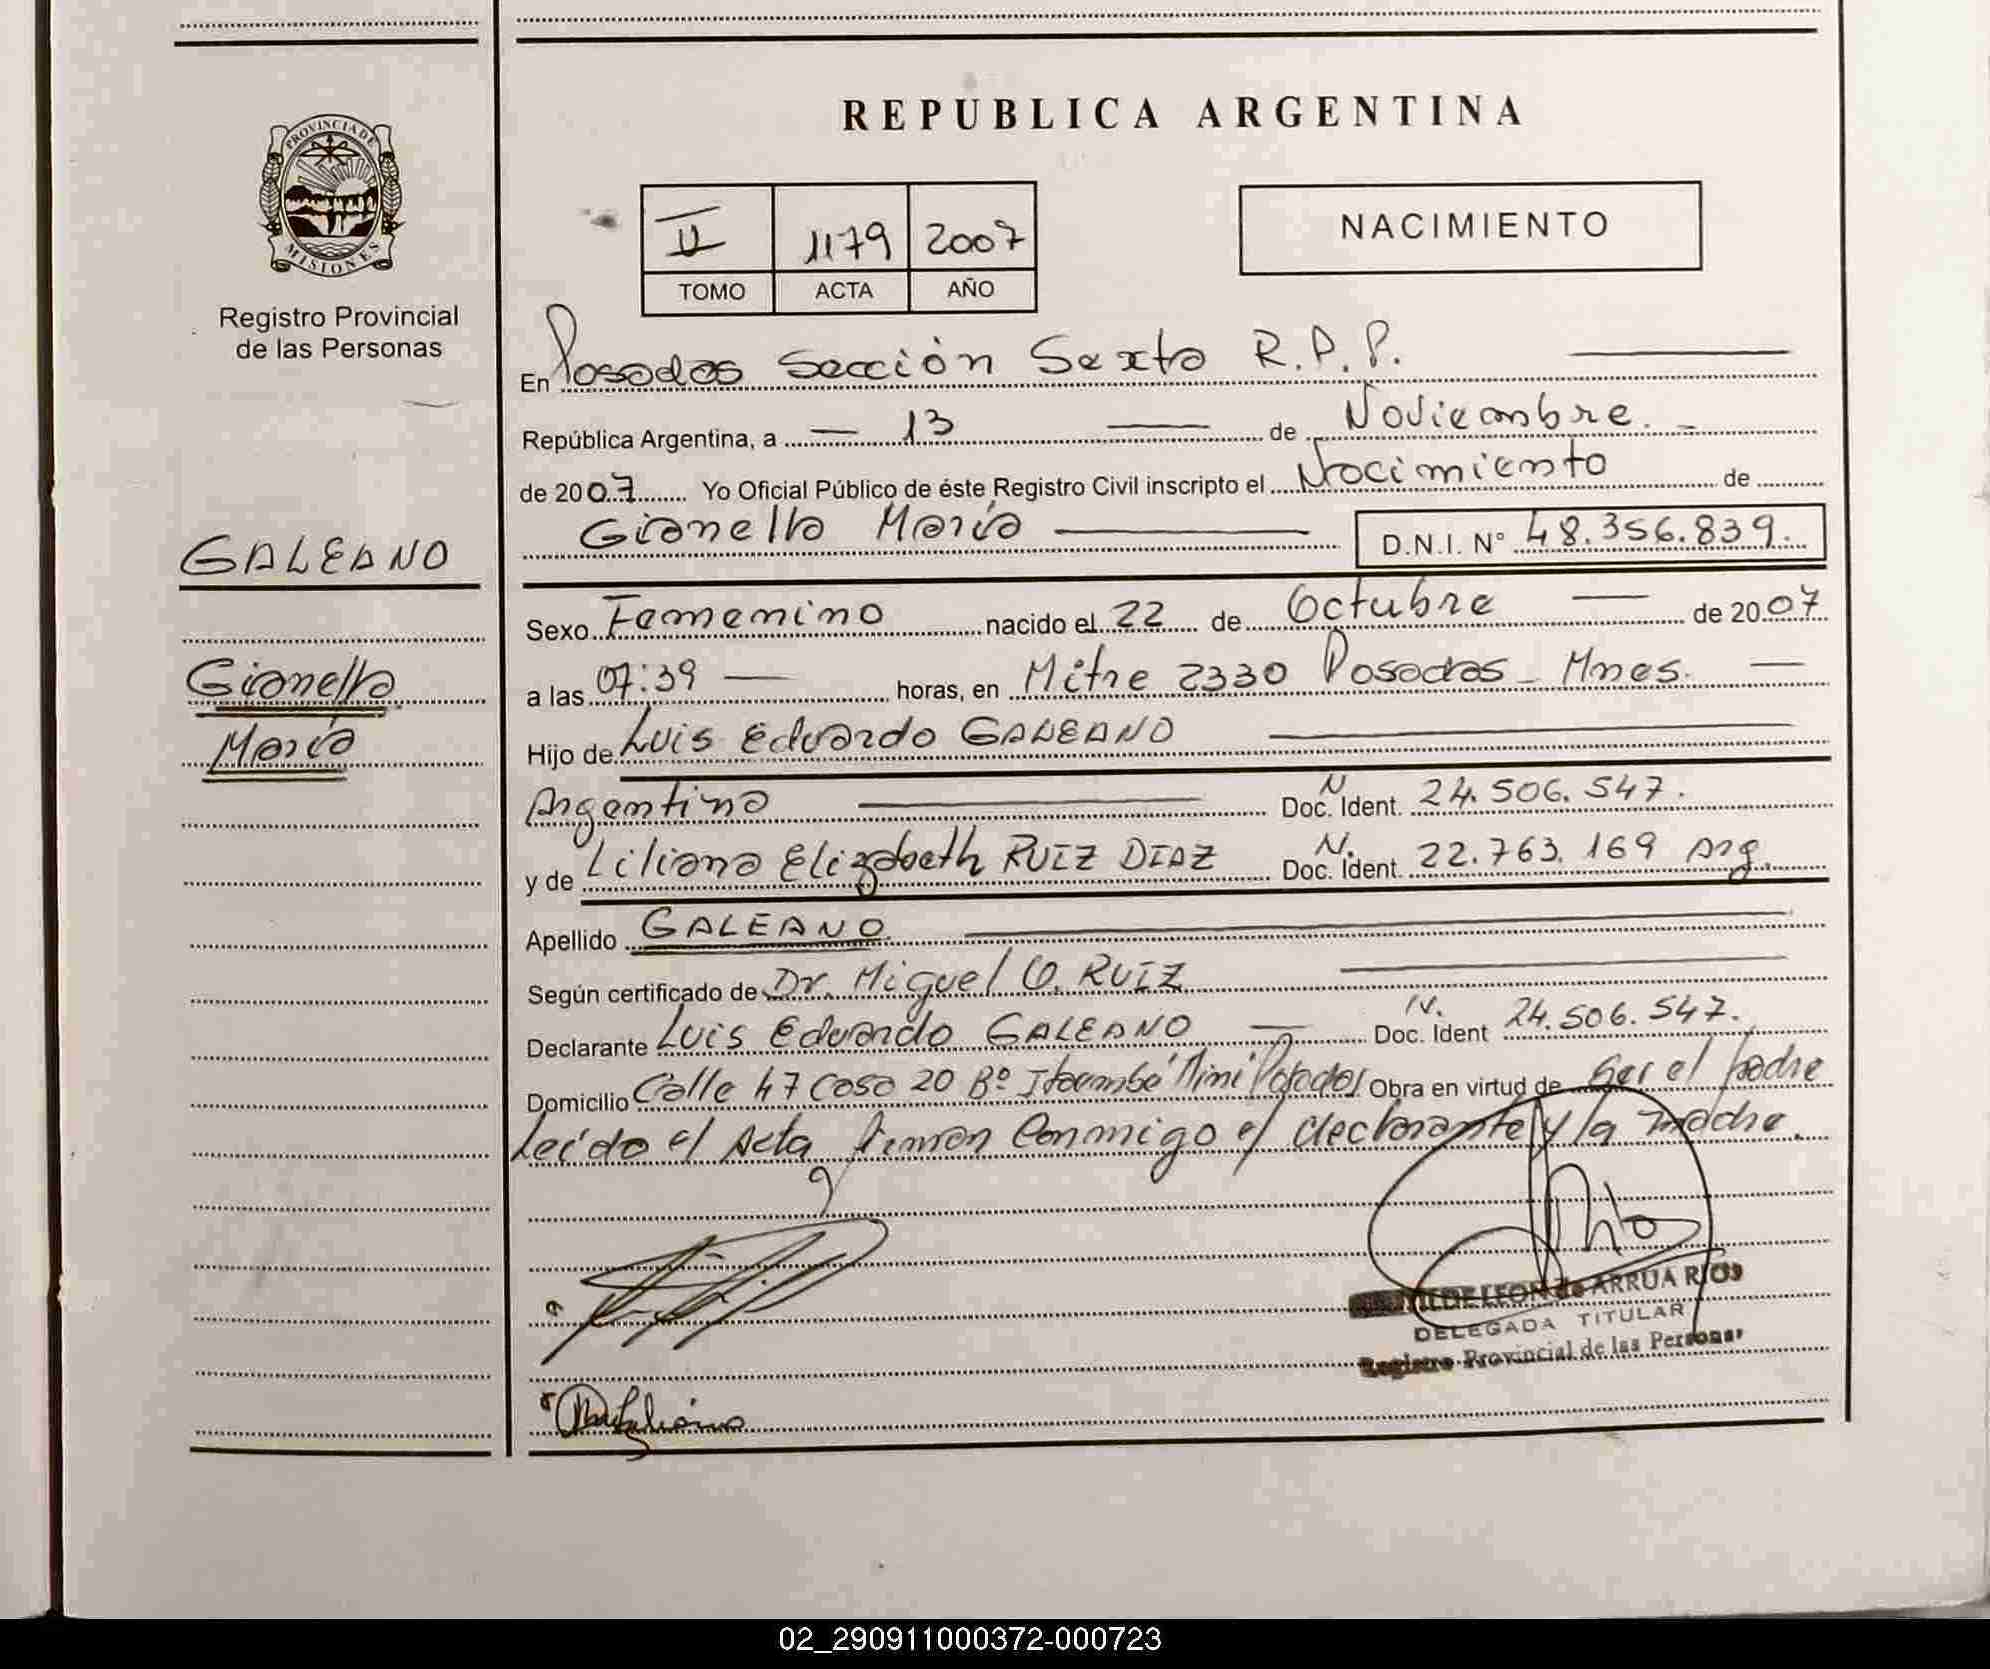 PROVINCIA DE
MISIONES
Registro Provincial
de las Personas
GALEANO
Gianella
María
REPUBLICA ARGENTINA
II 1179 2007
TOMO ACTA AÑO
NACIMIENTO
En Posadas Sección Sexta R.P.P.
República Argentina, a 13 de Noviembre.
de 2007 Yo Oficial Público de éste Registro Civil inscripto el Nacimiento de
Gianella María D.N.I. N° 48.356.839.
Sexo Femenino nacido el 22 de Octubre de 2007
a las 07:39 horas, en Mitre 2330 Posadas - Mnes.
Hijo de Luis Eduardo GALEANO
Argentino N Doc. Ident. 24.506.547.
y de Liliana Elizabeth RUIZ DIAZ N. Doc. Ident. 22.763.169 Arg.
Apellido GALEANO
Según certificado de Dr. Miguel O. RUIZ
Declarante Luis Eduardo GALEANO N. Doc. Ident 24.506.547.
Domicilio Calle 47 Casa 20 B° Itaembé Mini Posadas Obra en virtud de Ser el padre
Leído el Acta firman Conmigo el declarante y la madre.
LEON de ARRUA RIOS
DELEGADA TITULAR
Registro Provincial de las Personas
02_290911000372-000723